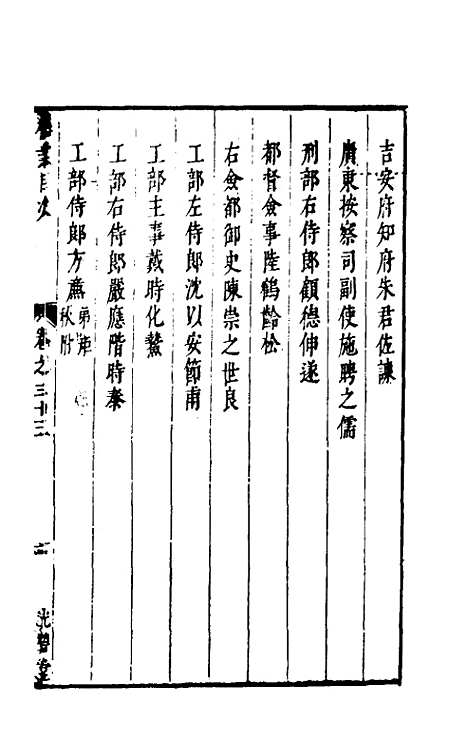 吉安府知府朱君佐諫
廣東按察司副使施聘之儒
刑部右侍郎顧德伸遂
都督僉事陸鶴齡松
右僉都御史陳崇之世良
工部左侍郎沈以安節甫
工部主事戴時化鰲
工部右侍郎嚴應階時泰
工部侍郎方廉 弟矩
秋附
目次
卷之三十三
二
光碧堂